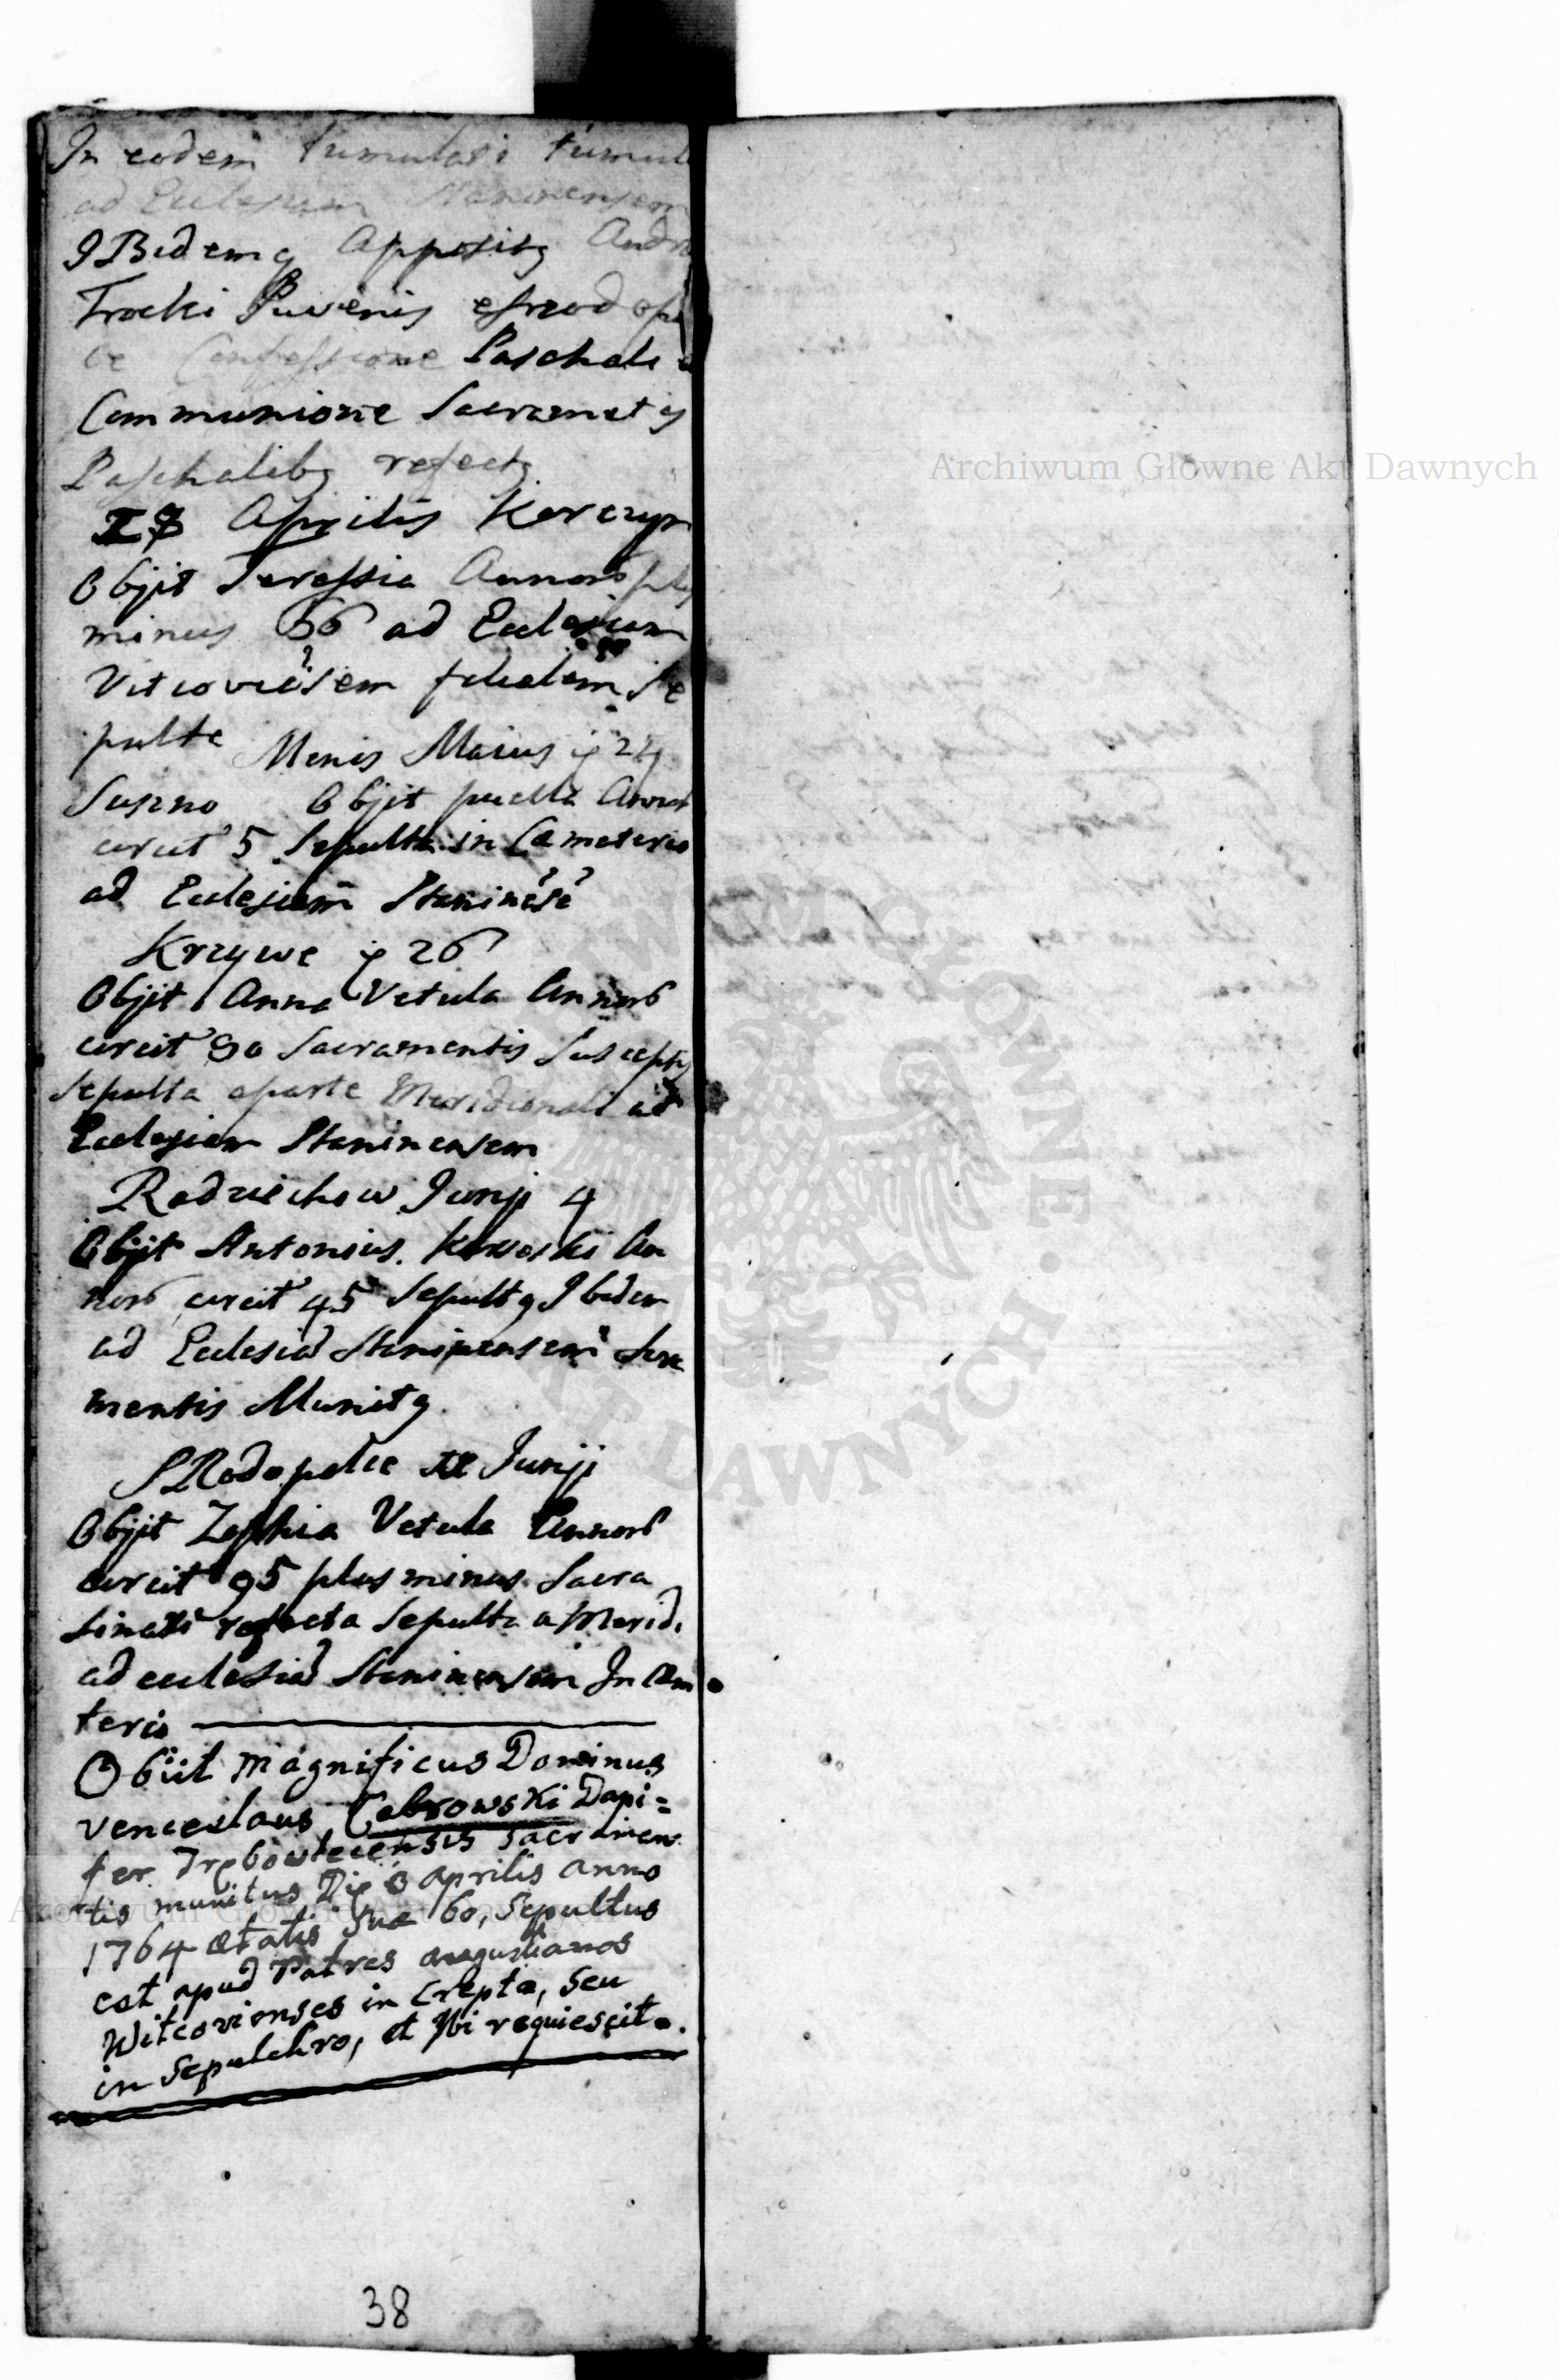 In eodem tumulati tumul
ad Eclesiam Staninensem
IBidemq Appositq Andr
Trocki Iuvenis
Confessione Paschali
Communione Sacrametis
Paschalibq refectq
Aprilis Korczyn
Objit Teressia Annorb plq
minus 66 ad Eclesiam
Vitcoviesem filialem Se
pulta Menis Maius 24
Suszno Objit puella Annor
circit 5 Sepulta in Cameterio
ad Eclesiam Staninese
Krzywe 26
Objit Anna Vetula Annorb
circit 90 Sacramentis Susceptis
Sepulta aparte Meridionali ad
Eclesiam Staninensem
Radziechow Junji 4
Objit Antonius Kowalski An
norb circit 45 Sepultq Ibidem
ad Eclesia Staninensem Sacra
mentis Munitq
SRodopolce Junji
Objit Zophia Vetula Annorb
circit 95 plus minus Sacra
refecta Sepulta a Merid.
ad eclesia Staninensem In Cem
terio
Obiit Magnificus Dominus
venceslaus Cebrowski Dapi=
fer Trębowlecensis Sacramen
tis munitus Die 3 Aprilis anno
1764 ætatis Suæ 60, Sepultus
est apud Patres augustianos
Witcovienses in Crepta, Seu
in Sepulchro, et Ibi requiescit.
38
Archiwum Główne Akt Dawnych
Archiwum Główne Akt Dawnych
ARCHIWUM GŁÓWNE AKT DAWNYCH